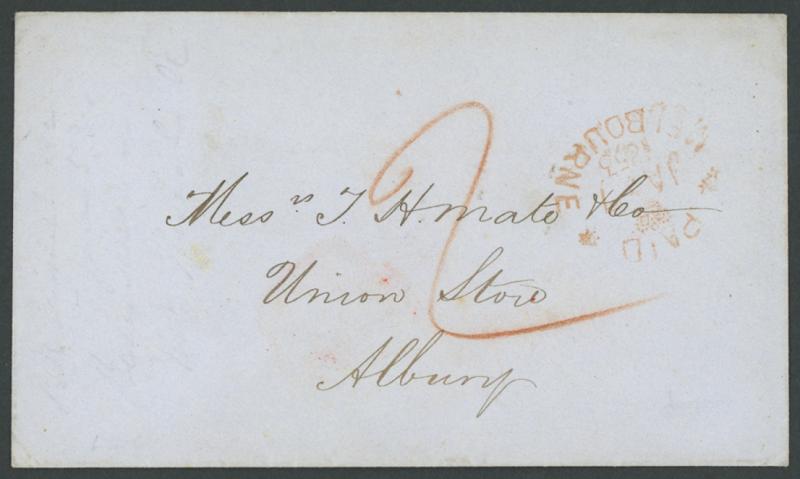 Mess.rs T. H. Mate & Co
Union Store
Albury
2
MELBOURNE
PAID